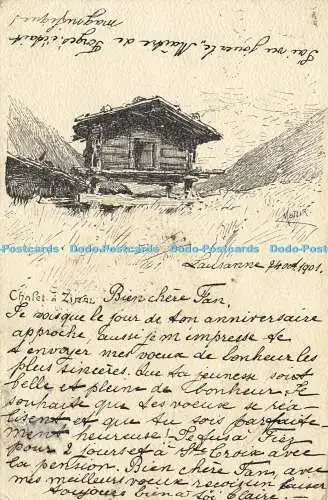 J'ai vu jouer le „Maître de
Forges", c'était
magnifique!
Postcards Dodo-Postcards Dodo-Postcards Dodo-Postcards Dodo
Lausanne 24 oct 1901.
Chalet à Zinal. Bien chère Fan.
Je vois que le jour de ton anniversaire
approche, aussi je m'empresse de
t'envoyer mes voeux de bonheur les
plus sincères. Que ta jeunesse soit
belle et pleine de bonheur. Je
souhaite que tes voeux se réa-
lisent et que tu sois parfaite-
ment heureuse! Je fus à
pour 2 jours et à Ste Croix avec
la pension. Bien chère Fan, avec
mes meilleurs voeux reçois un baiser
toujours bien à toi Claire